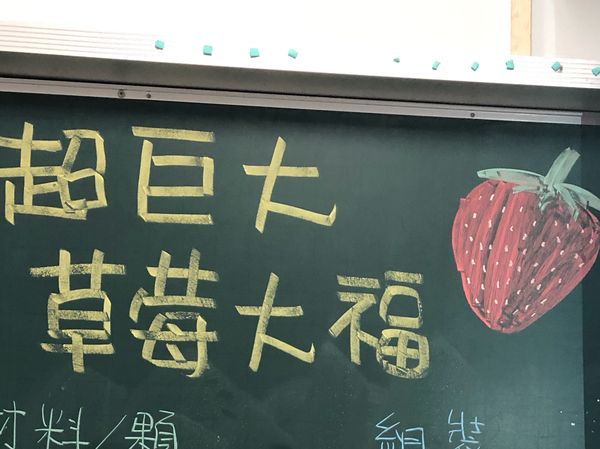 超巨大
草莓大福
材料/顆 組裝